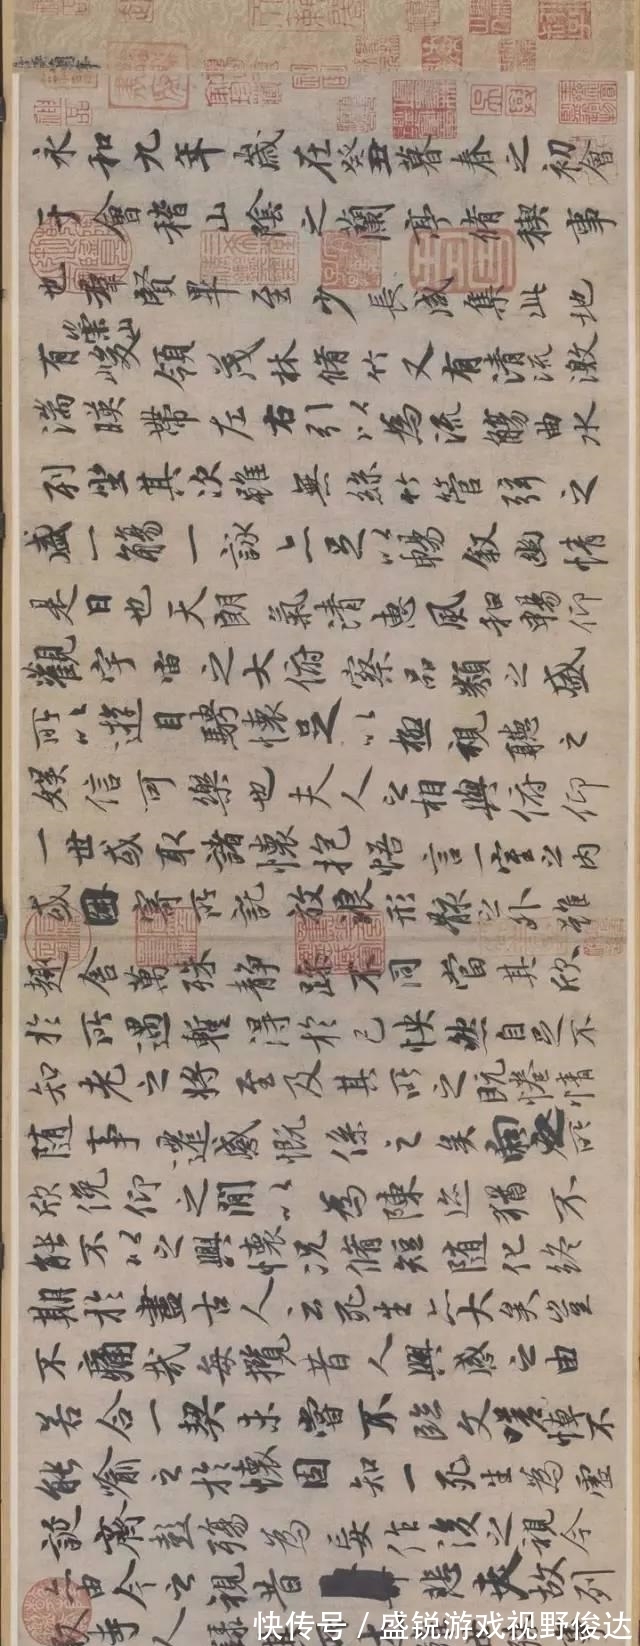 永和九年歲在癸丑暮春之初會
于會稽山陰之蘭亭脩稧事
也羣賢畢至少長咸集此地
有崇山峻領茂林脩竹又有清流激
湍暎帶左右引以為流觴曲水
列坐其次雖無絲竹管弦之
盛一觴一詠亦足以暢敘幽情
是日也天朗氣清惠風和暢仰
觀宇宙之大俯察品類之盛
所以遊目騁懷足以極視聽之
娛信可樂也夫人之相與俯仰
一世或取諸懷抱悟言一室之內
或因寄所託放浪形骸之外雖
趣舍萬殊靜躁不同當其欣
於所遇暫得於己怏然自足不
知老之將至及其所之既惓情
隨事遷感慨係之矣向之所
欣俛仰之閒以為陳迹猶不
能不以之興懷況脩短隨化終
期於盡古人云死生亦大矣豈
不痛哉每攬昔人興感之由
若合一契未嘗不臨文嗟悼不
能喻之於懷固知一死生為虛
誕齊彭殤為妄作後之視今
亦由今之視昔悲夫故列
快传号/盛锐游戏视野俊达